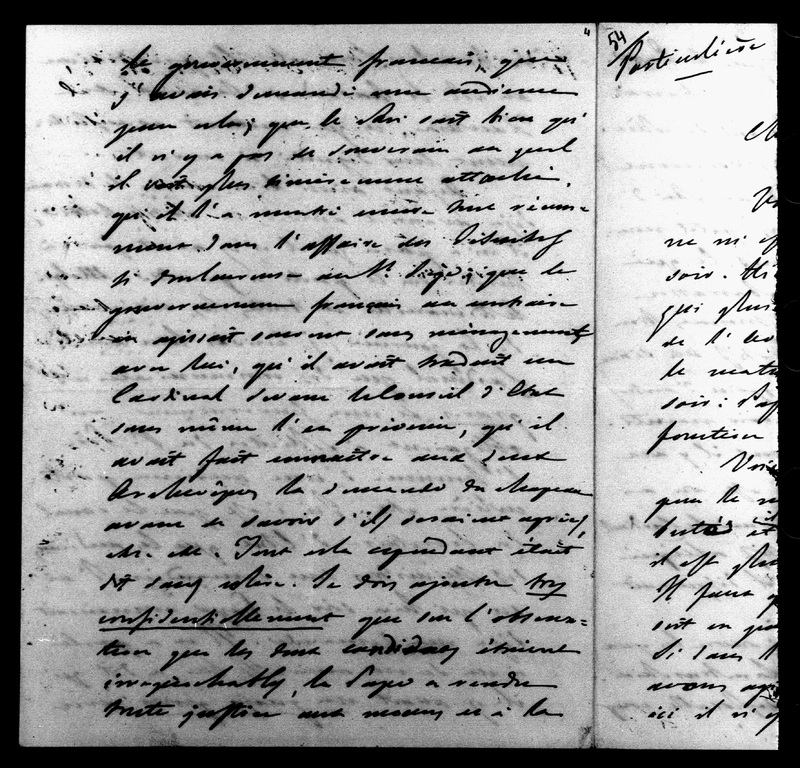 le gouvernement français, que
j'avais demandé une audience
pour cela; que le sait bien qu'
il n'y a pas de souverain auquel
il soit plus sincèrement attaché,
qu'il l'a montré encore tout récem-
ment dans l'affaire des
si douloureuse au St. Siège; que le
gouvernement français au contraire
en agissait souvent sans ménagements
avec lui, qu'il avait traduit un
Cardinal devant le Conseil d'Etat
sans même l'en prévenir, qu'il
avait fait connaître aux deux
Archevêques la demande du chapeau
avant de savoir s'ils seraient agréés,
etc. etc. Tout cela cependant était
dit sans colère. Je dois ajouter très
confidentiellement que sur l'observa=
tion que les deux candidats étaient
irréprochables, le Pape a rendu
toute justice aux moeurs et à la
54
Particulière
ne m'
soir.
qui plus
de l'
le
soir:
Voi
que le
il est plus
Il faut
sort en
Si dans l
avons
ici il n'y